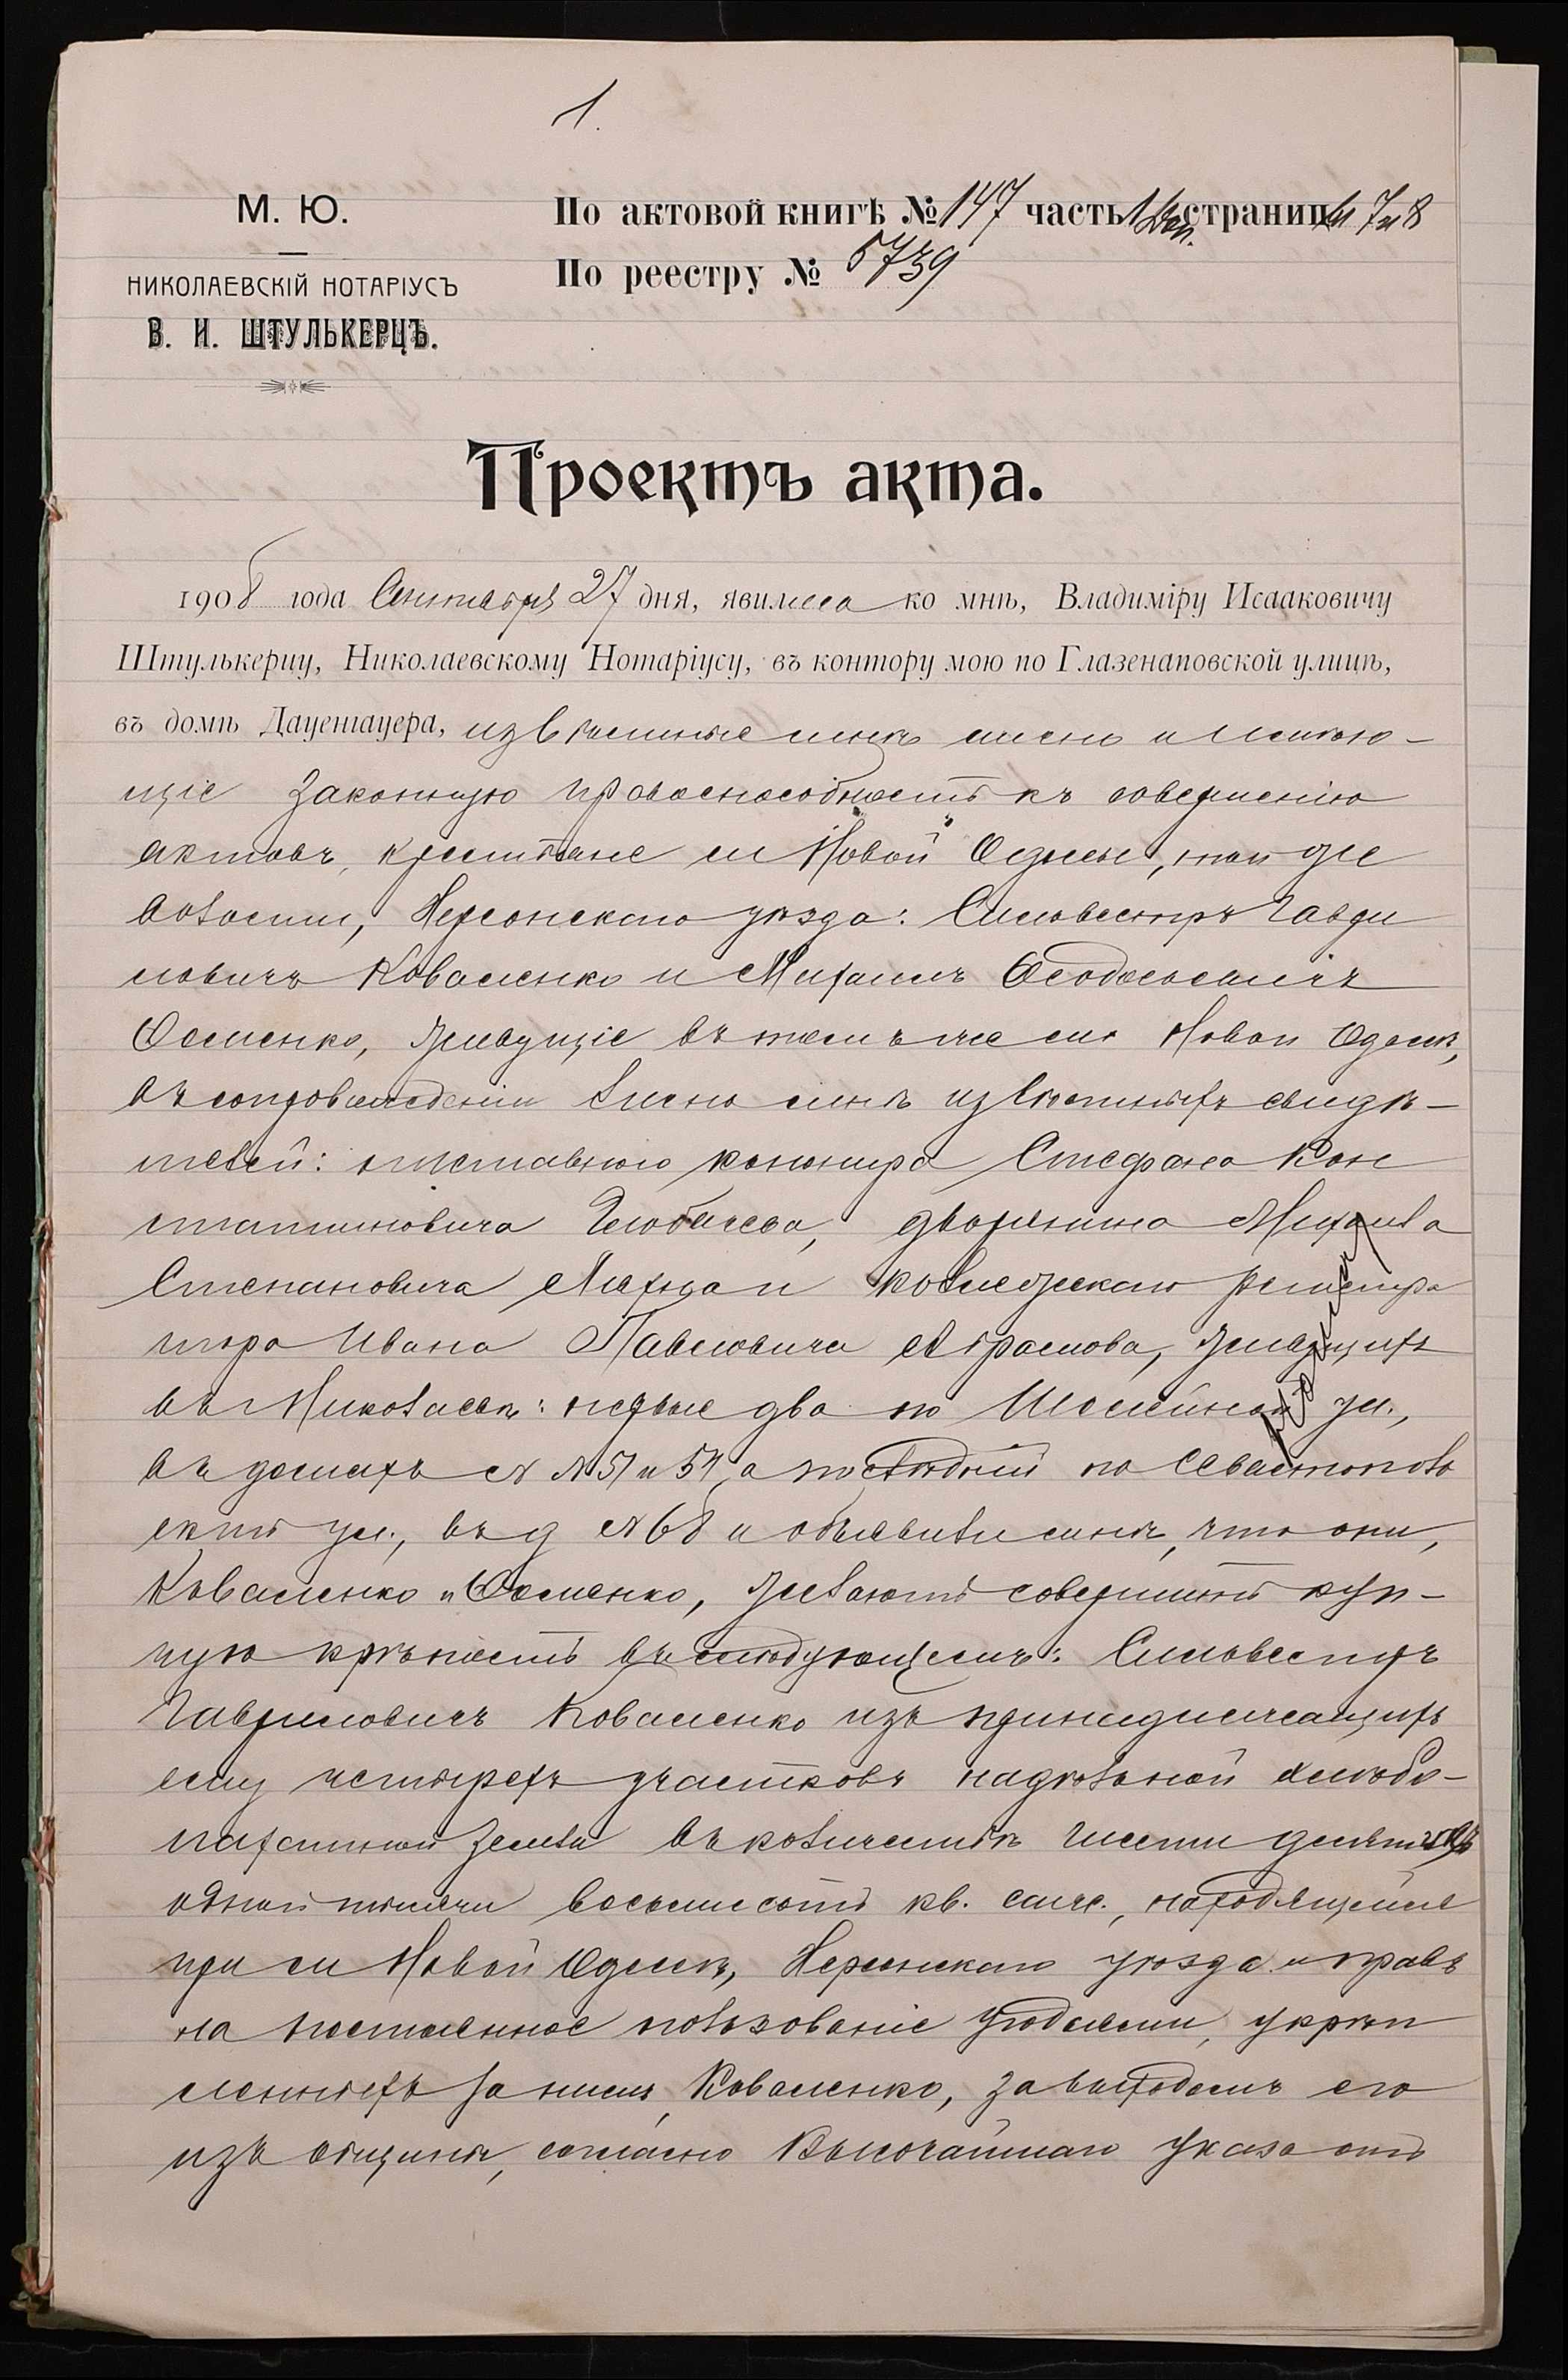 1.
М. Ю.
По актовой книгѣ № 147 часть 1 страниц 7 и 8
НИКОЛАЕВСКІЙ НОТАРІУСЪ
По реестру № 5739
В. И. ШТУЛЬКЕРЦЪ.
Проектъ акта.
1908 года Сентября 27 дня, явились ко мнѣ, Владиміру Исааковичу
Штулькерцу, Николаевскому Нотаріусу, въ контору мою по Глазенаповской улицѣ,
въ домѣ Дауенгауера, извѣстные мнѣ лично и имѣю-
щіе законную правоспособность къ совершенію
актовъ, крестьяне с. Новой Одессы, той же
волости, Херсонскаго уѣзда: Сильвестръ Гаври
ловичъ Коваленко и Михаилъ Ѳеодосьевичъ
живущіе въ томъ же с. Новой Одессѣ,
въ сопровожденіи лично мнѣ извѣстныхъ свидѣ-
телей: отставного Стефана Кон
стантиновича дворянина Михаила
Степановича и коллежскаго регистра
тора Ивана Павловича Абрамова, живущихъ
въ Николаевѣ: первые два по ул.,
въ домахъ № № 51 и 54, а послѣдній по Севастополь
ской ул., въ д № 68 и объявили мнѣ, что они,
Коваленко и желаютъ совершить куп-
чую крѣпость въ слѣдующемъ: Сильвестръ
Гавриловичъ Коваленко изъ принадлежащихъ
ему четырехъ участковъ надѣльной хлѣбо-
пахатной земли въ количествѣ шести десятинъ
одной тысячи восьмисотъ кв. саж., находящейся
при с. Новой Одессѣ, Херсонскаго уѣзда и правъ
на постоянное пользованіе угодьями, укрѣп
ленныхъ за нимъ, Коваленко, за выходомъ его
изъ общины, согласно Высочайшаго указа отъ